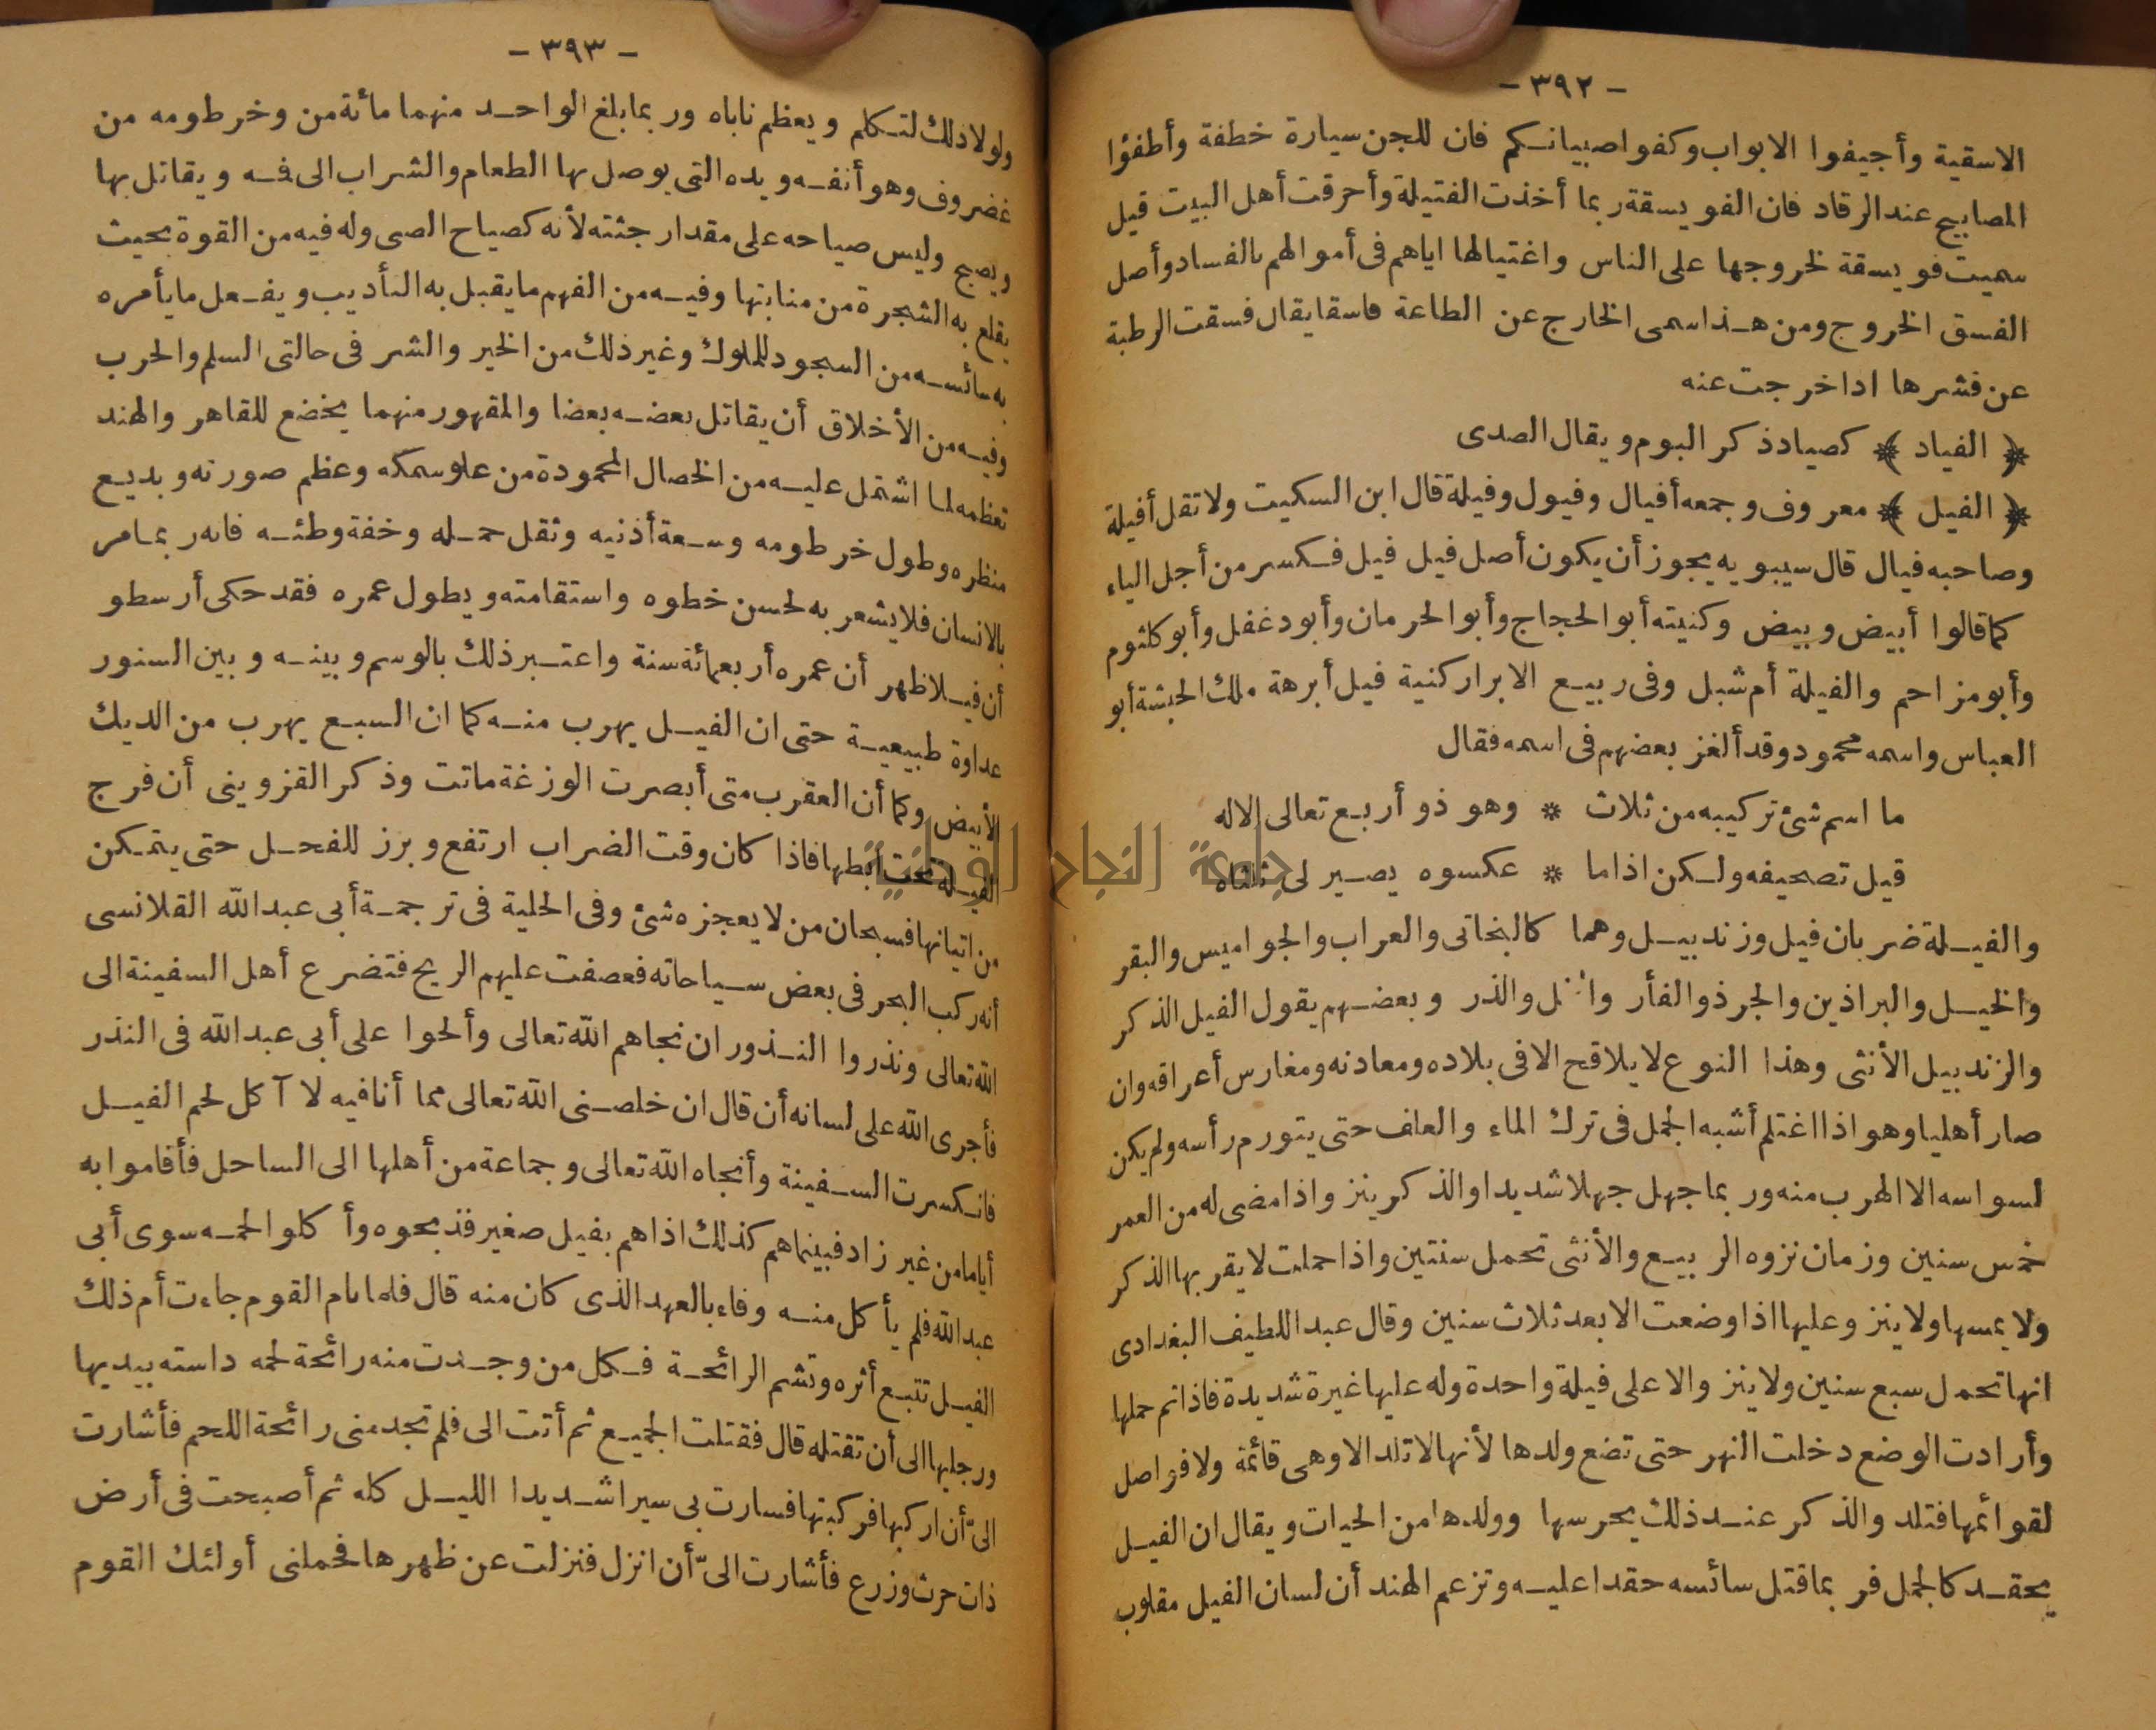 - ٣٩٢ -
الاسقية وأجيفوا الابواب وكفوا صبيانكم فان للجن سيارة خطفة وأطفؤا
المصابيح عند الرقاد فان الفويسقة ربما أخذت الفتيلة وأحرقت أهل البيت قيل
سميت فويسقة لخروجها على الناس واغتيالها اياهم فى أموالهم بالفساد وأصل
الفسق الخروج ومن هذا سمى الخارج عن الطاعة فاسقا يقال فسقت الرطبة
عن قشرها اذا خرجت عنه
﴿ الفياد ﴾ كصياد ذكر البوم ويقال الصدى
﴿ الفيل ﴾ معروف وجمعه أفيال وفيول وفيلة قال ابن السكيت ولا تقل أفيلة
وصاحبه فيال قال سيبويه يجوز أن يكون أصل فيل فيل فكسر من أجل الياء
كما قالوا أبيض وبيض وكنيته أبو الحجاج وأبو الحرمان وأبو دغفل وأبو كلثوم
وأبو مزاحم والفيلة أم شبل وفى ربيع الابرار كنية فيل أبرهة ملك الحبشة أبو
العباس واسمه محمود وقد ألغز بعضهم فى اسمه فقال
ما اسم شئ تركيبه من ثلاث * وهو ذو أربع تعالى الاله
قيل تصحيفه ولكن اذا ما * عكسوه يصير لى ثلثاه
والفيلة ضربان فيل وزندبيل وهما كالبخاتى والعراب والجواميس والبقر
والخيل والبراذين والجرذ والفأر والنمل والذر وبعضهم يقول الفيل الذكر
والزندبيل الأنثى وهذا النوع لا يلاقح الا فى بلاده ومعادنه ومغارس أعراقه وان
صار أهليا وهو اذا اغتلم أشبه الجمل فى ترك الماء والعلف حتى يتورم رأسه ولم يكن
لسواسه الا الهرب منه وربما جهل جهلا شديدا والذكر ينز واذا مضى له من العمر
خمس سنين وزمان نزوه الربيع والأنثى تحمل سنتين واذا حملت لا يقربها الذكر
ولا يمسها ولا ينز وعليها اذا وضعت الا بعد ثلاث سنين وقال عبد اللطيف البغدادى
انها تحمل سبع سنين ولا ينز والا على فيلة واحدة وله عليها غيرة شديدة فاذا تم حملها
وأرادت الوضع دخلت النهر حتى تضع ولدها لأنها لا تلد الا وهى قائمة ولا فواصل
لقوائمها فتلد والذكر عند ذلك يحرسها وولدها من الحيات ويقال ان الفيل
يحقد كالجمل فربما قتل سائسه حقدا عليه وتزعم الهند أن لسان الفيل مقلوب
- ٣٩٣ -
ولولا ذلك لتكلم ويعظم ناباه وربما بلغ الواحد منهما مائة من وخرطومه من
غضروف وهو أنفه ويده التى يوصل بها الطعام والشراب الى فه ويقاتل بها
ويصيح وليس صياحه على مقدار جثته لأنه كصياح الصبى وله فيه من القوة بحيث
يقلع به الشجرة من منابتها وفيه من الفهم ما يقبل به التأديب ويفعل ما يأمره
به سائسه من السجود للملوك وغير ذلك من الخير والشر فى حالتى السلم والحرب
وفيه من الأخلاق أن يقاتل بعضه بعضا والمقهور منهما يخضع للقاهر والهند
تعظمه لما اشتمل عليه من الخصال المحمودة من علو سمكه وعظم صورته وبديع
منظره وطول خرطومه وسعة أذنيه وثقل حمله وخفة وطئه فانه ربما مر
بالانسان فلا يشعر به لحسن خطوه واستقامته ويطول عمره فقد حكى أرسطو
أن فيلا ظهر أن عمره أربعمائة سنة واعتبر ذلك بالوسم وبينه وبين السنور
عداوة طبيعية حتى ان الفيل يهرب منه كما ان السبع يهرب من الديك
الأبيض وكما أن العقرب متى أبصرت الوزغة ماتت وذكر القزوينى أن فرج
الفيلة تحت ابطها فاذا كان وقت الضراب ارتفع وبرز للفحل حتى يتمكن
من اتيانها فسبحان من لا يعجزه شئ وفى الحلية فى ترجمة أبى عبد الله القلانسى
أنه ركب البحر فى بعض سياحاته فعصفت عليهم الريح فتضرع أهل السفينة الى
الله تعالى ونذروا النذور ان نجاهم الله تعالى وألحوا على أبى عبد الله فى النذر
فأجرى الله على لسانه أن قال ان خلصنى الله تعالى مما أنا فيه لا آكل لحم الفيل
فانكسرت السفينة وأنجاه الله تعالى وجماعة من أهلها الى الساحل فأقاموا به
أياما من غير زاد فبينما هم كذلك اذا هم بفيل صغير فذبحوه وأكلوا لحمه سوى أبى
عبد الله فلم يأكل منه وفاء بالعهد الذى كان منه قال فلما نام القوم جاءت أم ذلك
الفيل تتبع أثره وتشم الرائحة فكل من وجدت منه رائحة لحمه داسته بيديها
ورجليها الى أن تقتله قال فقتلت الجميع ثم أتت الى فلم تجد منى رائحة اللحم فأشارت
الىّ أن اركبها فركبتها فسارت بى سيرا شديدا الليل كله ثم أصبحت فى أرض
ذات حرث وزرع فأشارت الىّ أن انزل فنزلت عن ظهرها فحملنى أولئك القوم
جامعة النجاح الوطنية